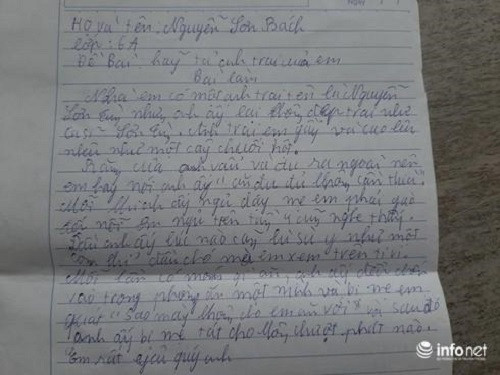 NGÀY
Họ và tên: Nguyễn Sơn Bách
Lớp: 6A
Đề Bài: hãy tả anh trai của em
Bài làm
Nhà em có một anh trai tên là Nguyễn
Sơn Tùng nhưng anh ấy lại không đẹp trai như
ca sĩ Sơn Tùng. Anh trai em gầy và cao lêu
nghêu như một cây chuối hột.
Răng của anh vẩu và dư ra ngoài nên
em hay nói anh ấy "ăn đu đủ không cần thìa".
Mỗi khi anh ấy ngủ dậy mẹ em phải quát
em ngủ trên tầng 4 cũng nghe thấy.
Đầu anh ấy lúc nào cũng bù xù y như một
dân cho mẹ em xem trên tivi.
Mỗi lần có món gì ăn, anh ấy
trong phòng ăn một mình và bị mẹ em
quát "sao mày không cho em ăn với" và sau đó
anh ấy bị mẹ tát cho không chượt phát nào.
em rất yêu quý anh
infonet